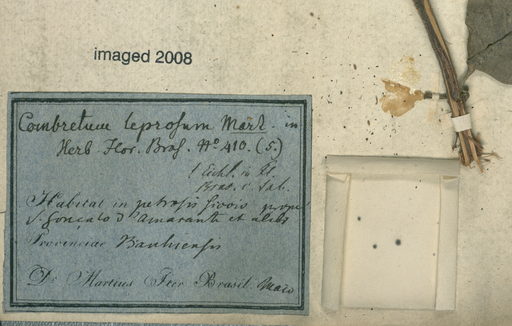 imaged 2008
Combretum leprosum Mart. in
Herb Flor. Bras. Nº 410. (5.)
! Eichl. in Fl.
Bras. c. tab.
Habitat in petrosis siccis prope
S. Gonçalo d'Amarante et aliis
Provinciae Piauhiensis
Dr Martius Iter Brasil. Maio